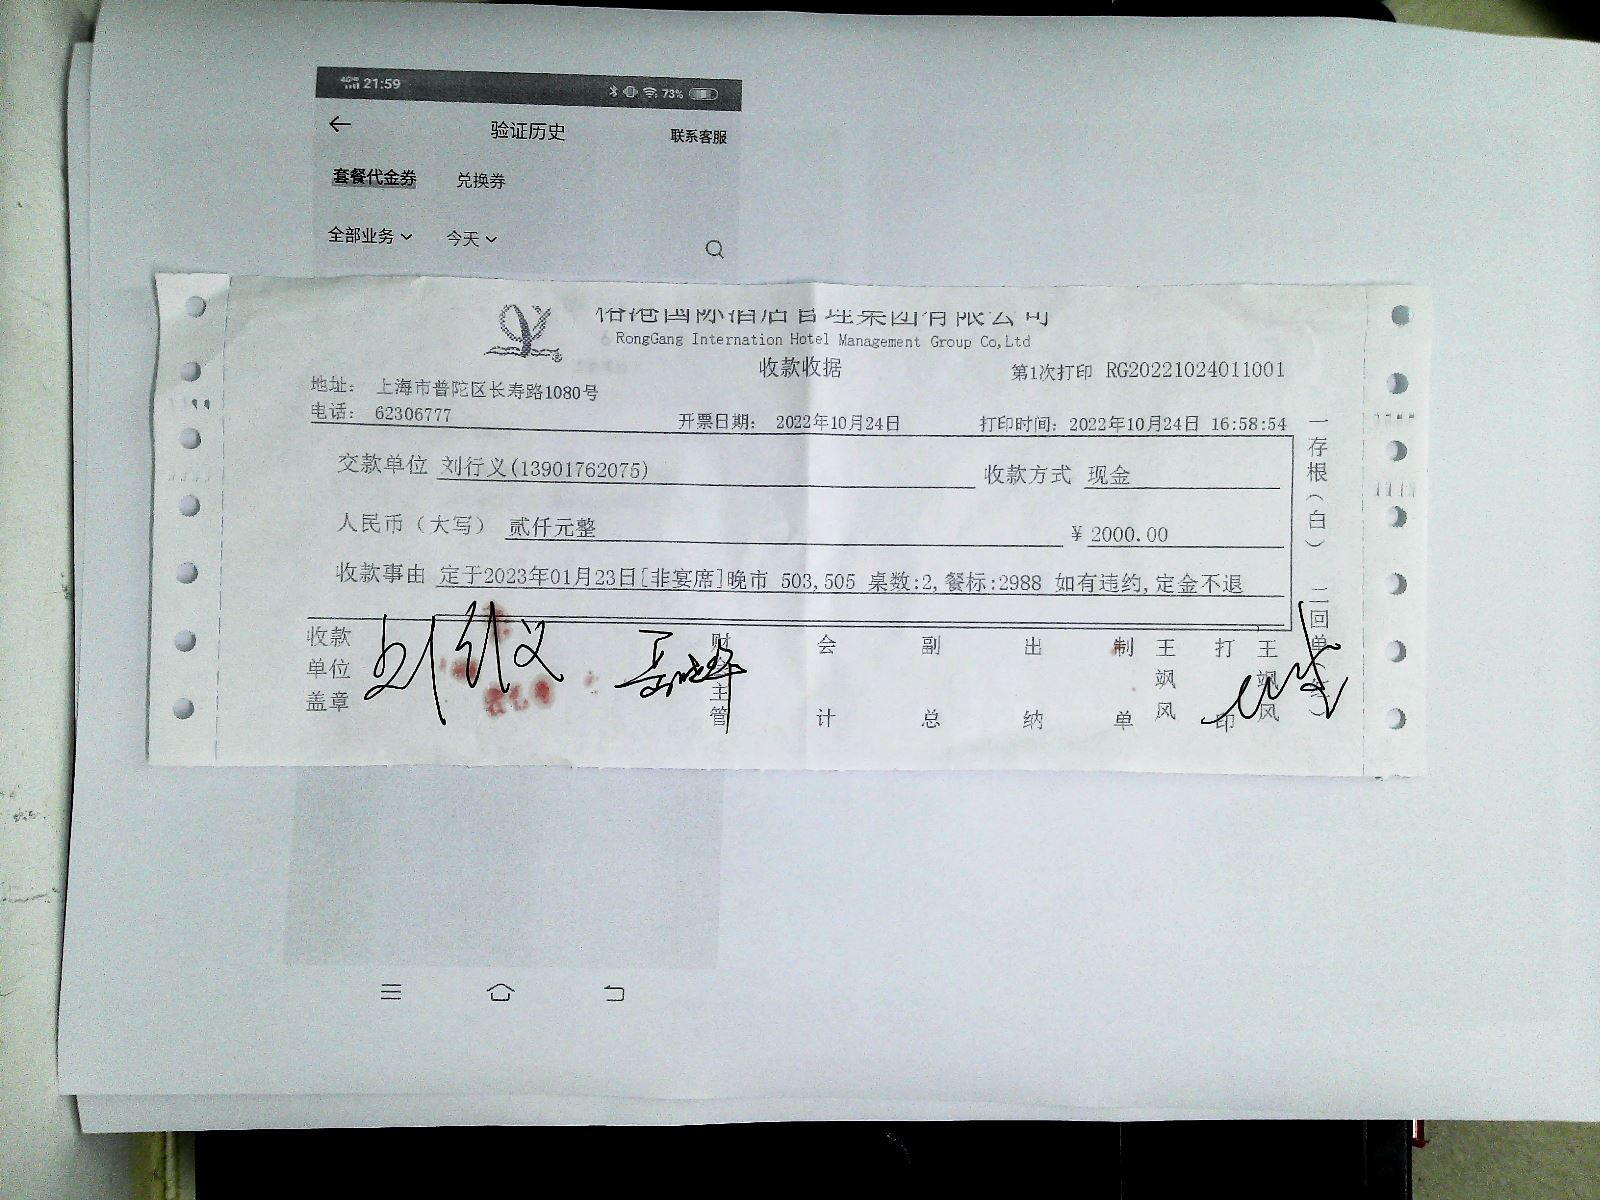 21:59 73%
验证历史 联系客服
套餐代金券 兑换券
全部业务 今天
榕港国际酒店管理集团有限公司
RongGang Internation Hotel Management Group Co,Ltd
收款收据
第1次打印 RG20221024011001
地址: 上海市普陀区长寿路1080号
电话: 62306777
开票日期: 2022年10月24日
打印时间: 2022年10月24日 16:58:54
交款单位 刘行义(13901762075)
收款方式 现金
人民币（大写） 贰仟元整
¥ 2000.00
收款事由 定于2023年01月23日[非宴席]晚市 503,505 桌数:2,餐标:2988 如有违约,定金不退
一存根（白） 二回单
收款单位盖章
刘行义
财 主管
会计
副总
出纳
制单 王飒风
打印 王飒风